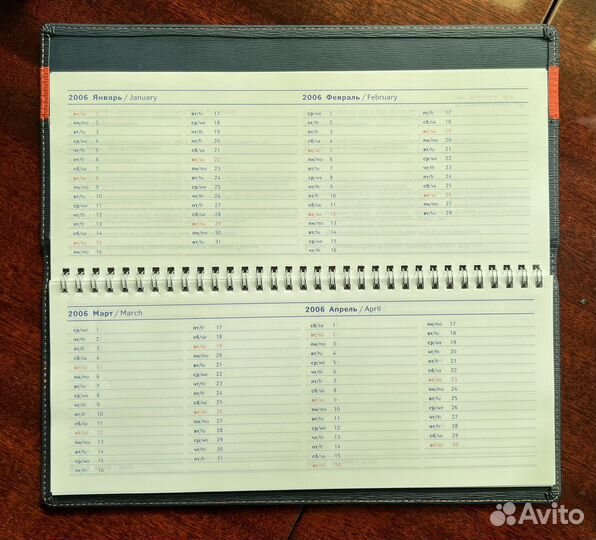 2006 Январь / January
вс/su 1
пн/mo 2
вт/tu 3
ср/we 4
чт/th 5
пт/fr 6
сб/sa 7
вс/su 8
пн/mo 9
вт/tu 10
ср/we 11
чт/th 12
пт/fr 13
сб/sa 14
вс/su 15
пн/mo 16
вт/tu 17
ср/we 18
чт/th 19
пт/fr 20
сб/sa 21
вс/su 22
пн/mo 23
вт/tu 24
ср/we 25
чт/th 26
пт/fr 27
сб/sa 28
вс/su 29
пн/mo 30
вт/tu 31
2006 Февраль / February
ср/we 1
чт/th 2
пт/fr 3
сб/sa 4
вс/su 5
пн/mo 6
вт/tu 7
ср/we 8
чт/th 9
пт/fr 10
сб/sa 11
вс/su 12
пн/mo 13
вт/tu 14
ср/we 15
чт/th 16
пт/fr 17
сб/sa 18
вс/su 19
пн/mo 20
вт/tu 21
ср/we 22
чт/th 23
пт/fr 24
сб/sa 25
вс/su 26
пн/mo 27
вт/tu 28
2006 Март / March
ср/we 1
чт/th 2
пт/fr 3
сб/sa 4
вс/su 5
пн/mo 6
вт/tu 7
ср/we 8
чт/th 9
пт/fr 10
сб/sa 11
вс/su 12
пн/mo 13
вт/tu 14
ср/we 15
чт/th 16
пт/fr 17
сб/sa 18
вс/su 19
пн/mo 20
вт/tu 21
ср/we 22
чт/th 23
пт/fr 24
сб/sa 25
вс/su 26
пн/mo 27
вт/tu 28
ср/we 29
чт/th 30
пт/fr 31
2006 Апрель / April
сб/sa 1
вс/su 2
пн/mo 3
вт/tu 4
ср/we 5
чт/th 6
пт/fr 7
сб/sa 8
вс/su 9
пн/mo 10
вт/tu 11
ср/we 12
чт/th 13
пт/fr 14
сб/sa 15
вс/su 16
пн/mo 17
вт/tu 18
ср/we 19
чт/th 20
пт/fr 21
сб/sa 22
вс/su 23
пн/mo 24
вт/tu 25
ср/we 26
чт/th 27
пт/fr 28
сб/sa 29
вс/su 30
Avito